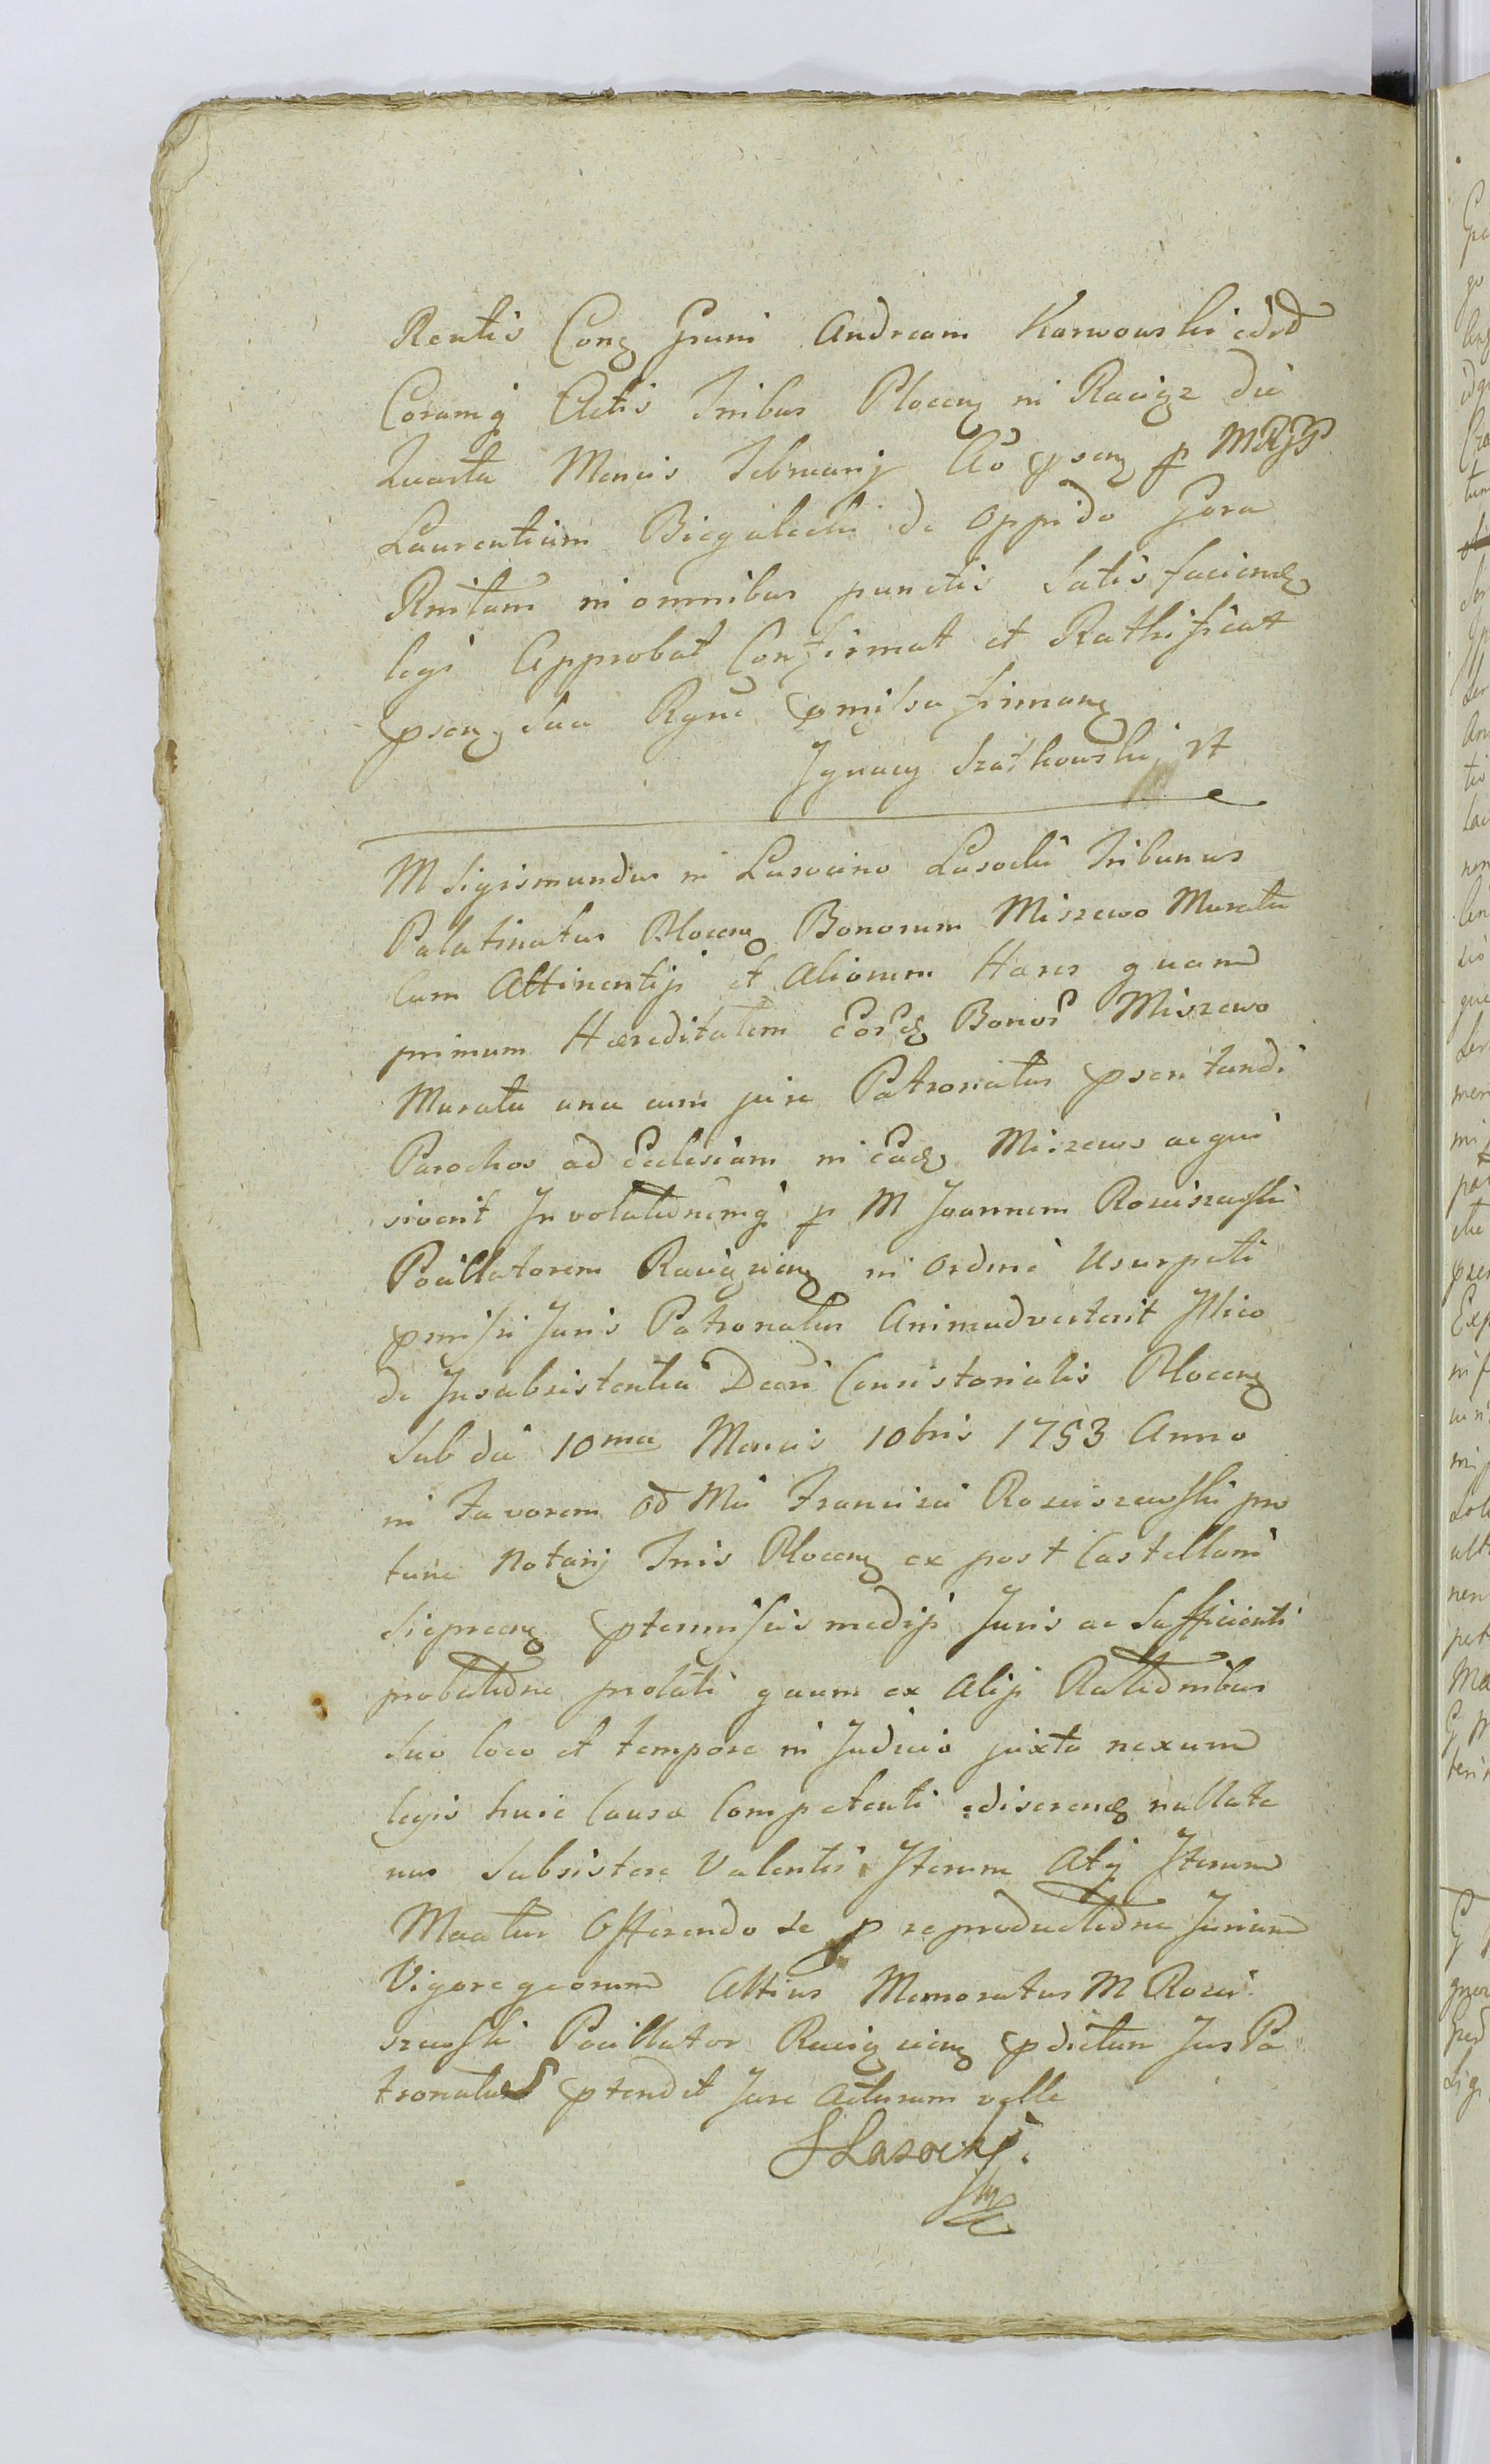 Rentis Conz Grum Andream Karwowski edrd
Coramq Actis Tribus Plocenz in Raciąz die
Quarta Mensis Februarij Ao psenz p MRJP
Laurentium Biegalecki de Oppido Gora
Rnitum in omnibus punctis Satisfaciend
legi Approbat Confirmat et Rathificat
psenz sua Rgne pmissa firmanz
Jgnacy Szatkowski
M Sigismundus in Lasocino Lasocki Tribunus
Palatinatus Plocenz Bonorum Miszewo Murata
Cum Attinentijs et Aliorum Hares quam
primum Hæreditatem Eord Bonor Miszewo
Murata una cum jure Patronatus psentandi
Parochos ad Ecclesiam in Ead Miszewo acqui
siverit Jnvolatednemq p M Joannem Rosciszewski
Pocillatorem Raciązienz in Ordine Usurpati
pmissi Juris Patronatus Animadverterit Jllico
de Jnsubsistentia Decri Consistorialis Plocenz
Sub die 10ma Mensis 10bris 1753 Anno
in Favorem od Mci Francisci Rosciszewski pro
tunc Notarij Tris Plocenz ex post Castellani
Sieprcenz ptermissis medijs Juris ac Sufficienti
probatedne prolati quum ex Alijs Ratednibus
suo loco et tempore in Judicio juxta nexum
legis huic Causæ Competenti edisserend nullate
nus Subsistere Valentis Iterum Atq Iterum
Maatur Offerendo se p reproductedne Jurium
Vigore qeorum Altius Memoratus M Rosci
szewski Pocillator Raciązienz pdictum Jus Pa
tronatus ptendit Jure Acturum velle
SLasocki